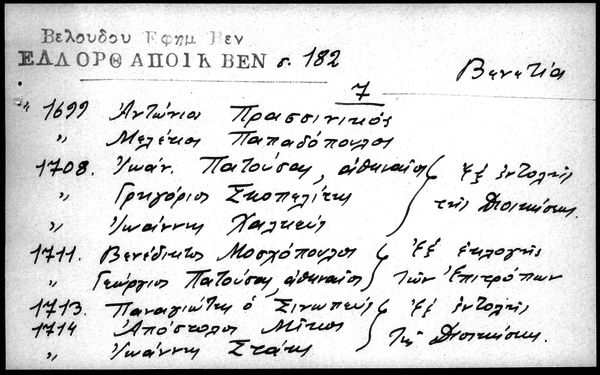 Βελουδου Εφημ Βεν
ΕΛΛΟΡΘ ΑΠΟΙΚ ΒΕΝ σ. 182
Βενετία
7
1699 Ἀντώνιος Πρασσινικός
" Μελέτιος Παπαδόπουλος
1708. Ἰωάν. Πατούσας, ἀθηναῖος } Ἐξ ἐντολῆς
" Γρηγόριος Σκοπελίτης
" Ἰωάννης Χαλκεύς } τῆς Διοικήσεως.
1711. Βενέδικτος Μοσχόπουλος } Ἐξ ἐκλογῆς
" Γεώργιος Πατούσας, ἀθηναῖος } τῶν Ἐπιτρόπων
1713. Παναγιώτης ὁ Σινωπεύς } Ἐξ ἐντολῆς
1714 Ἀπόστολος Μῖκος
" Ἰωάννης Στάης } τῆς Διοικήσεως.